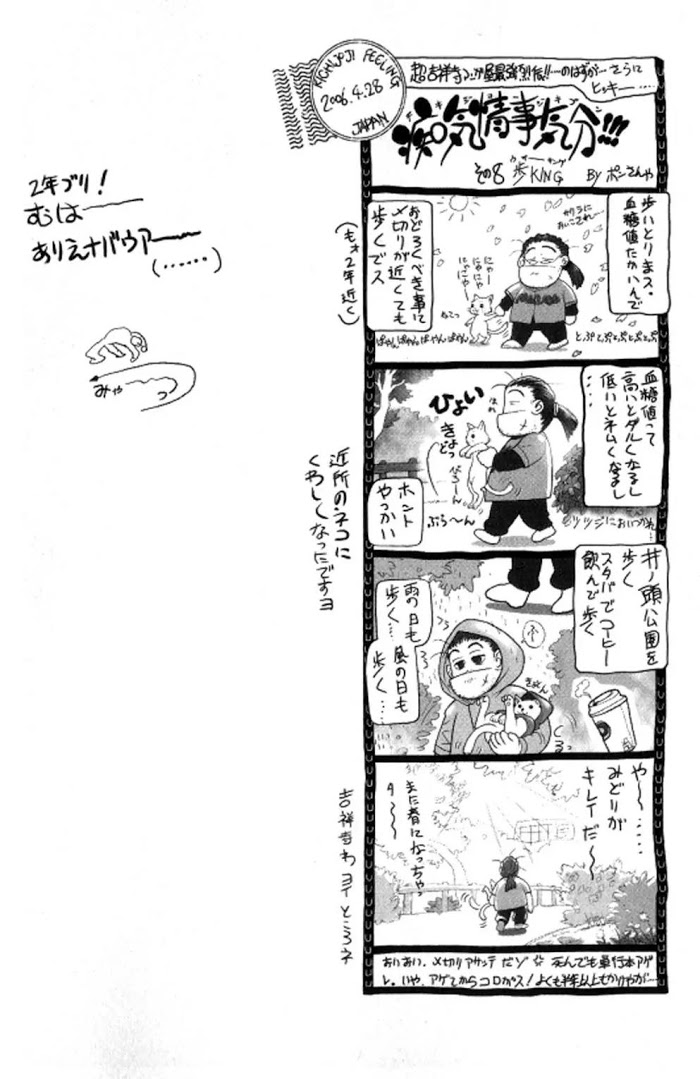 KICHIJOJI FEELING
2006.4.28
JAPAN
超吉祥寺マンガ屋最強烈伝!!…のはずが…さらに
ヒッキー……
病気情事気分!!!
その8 歩KING
ウォーキング
By ポンさんや
歩いとりまス。
血糖値たかいんで
サクラに
おいこされ〜
にゃー
にゃにゃ
にゃごにゃー
ねこっ
おどろくべき事に
〆切りが近くても
歩くでス
(もォ2年近く)
ぱやんぱやんぱやんぱやん
とぷとぷとぷとぷとぷ
血糖値って
高いとダルくなるし
低いとネムくなるし
……
ひょい
きょどっ
べろーん
ぷら〜ん
ホント
やっかい
ツツジにおいつかれ…
近所のネコに
くわしくなったですヨ
井ノ頭公園を
歩く
スタバでコーヒー
飲んで歩く
雨の日も
歩く…
風の日も
歩く……
きゅん
や〜……
みどりが
キレイだ〜
また春になっちゃっ
タ〜〜
吉祥寺わヨイところネ
おいおい、〆切りアサッテだゾ☆死んでも単行本アゲ
レ。いや、アゲてからコロがス!よくも半年以上もかりやが…
2年ブリ!
むは――
ありえナバウアー――
(……)
みゃ〜〜っ